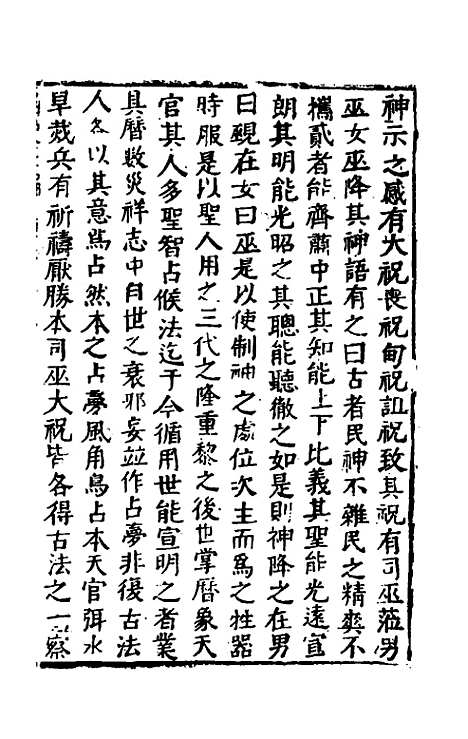 神示之感有大祝喪祝甸祝詛祝致其祝有司巫蒞男
巫女巫降其神語有之曰古者民神不雜民之精爽不
攜貳者能齊肅中正其知能上下比義其聖能光遠宣
朗其明能光昭之其聰能聽徹之如是則神降之在男
曰覡在女曰巫是以使制神之處位次主而為之牲器
時服是以聖人用之三代之隆重黎之後也掌曆象天
官其人多聖智占候法迄于今循用世能宣明之者業
具曆數災祥志中自世之衰邪妄並作占夢非復古法
人各以其意為占然本之占夢風角鳥占本天官弭水
旱烖兵有祈禱厭勝本司巫大祝皆各得古法之一察